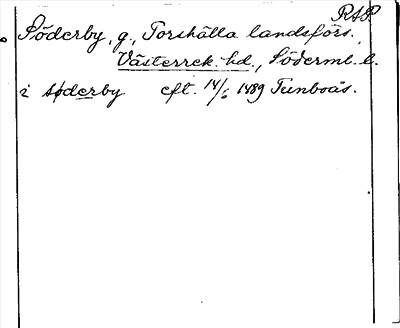 RAP
Söderby, g., Torshälla landsförs.,
Västerrek. hd., Söderml. l.
i søderby eft. 14/6 1489 Tunboås.